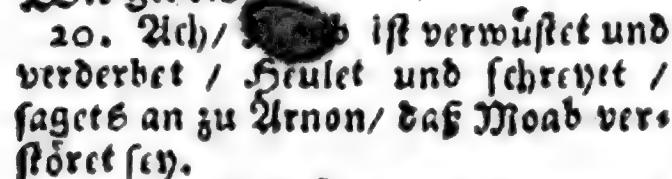 20. Ach/ ist verwüstet und
verderbet / Heulet und schreyet /
sagets an zu Arnon/ daß Moab ver-
störet sey.